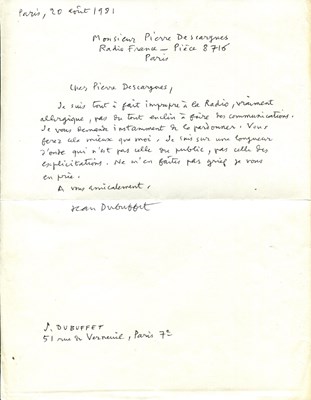 Paris, 20 août 1981
Monsieur Pierre Descargues
Radio France – Pièce 8716
Paris
Cher Pierre Descargues,
Je suis tout à fait impropre à la Radio, vraiment
allergique, pas du tout enclin à faire des communications.
Je vous demande instamment de le pardonner. Vous
ferez cela mieux que moi. Je suis sur une longueur
d'onde qui n'est pas celle du public, pas celle des
explicitations. Ne m'en faites pas grief je vous
en prie.
A vous amicalement.
Jean Dubuffet
J. DUBUFFET
51 rue de Verneuil, Paris 7e